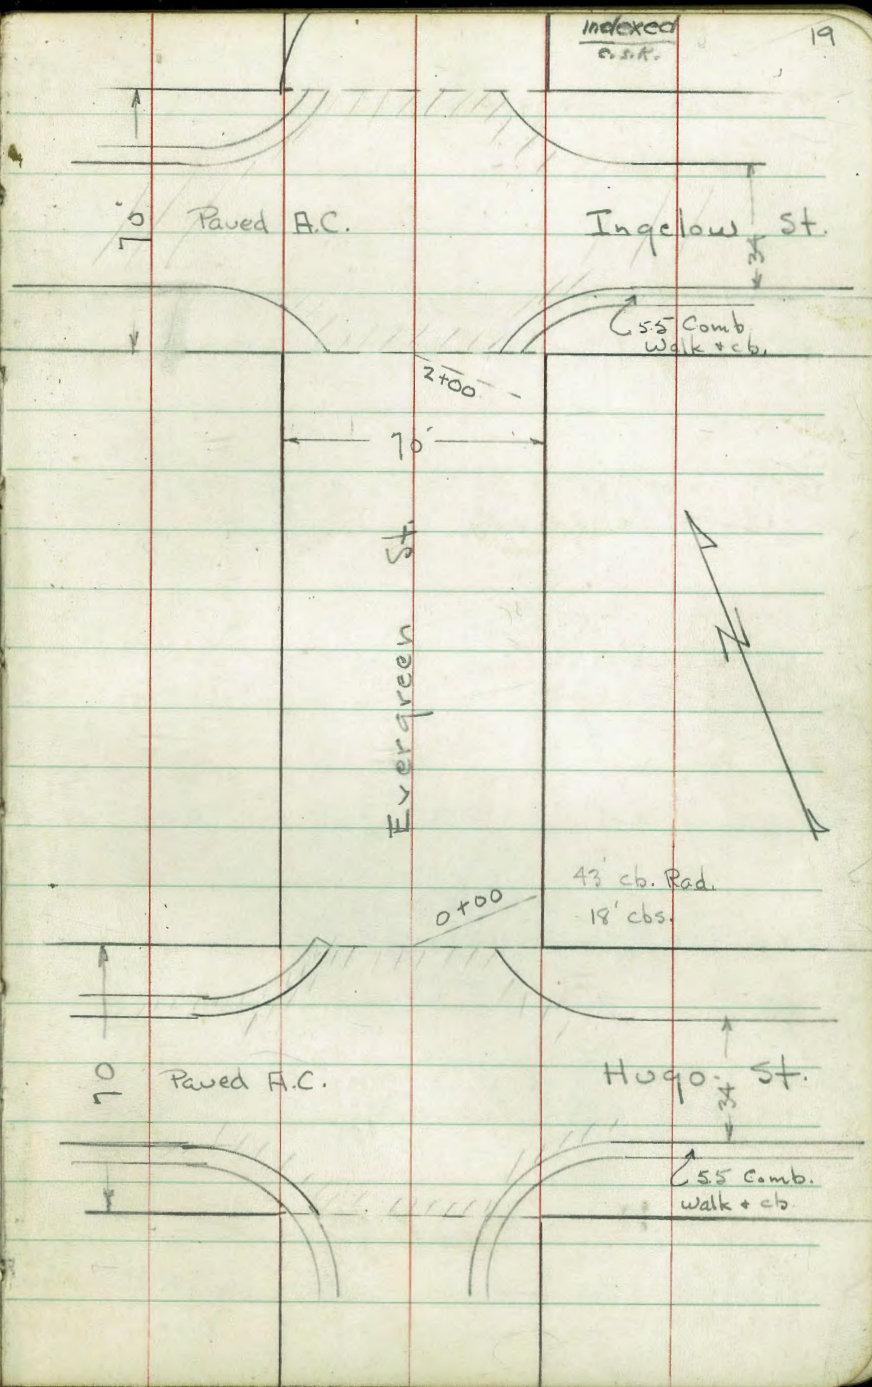 Indexed
e.s.k.
19
70'
Paved A.C.
Ingelow St.
34
5.5 Comb
Walk + cb.
2+00
70'
Evergreen St.
N
43' cb. Rad.
18' cbs.
0+00
70
Paved A.C.
Hugo St.
34
5.5 Comb.
Walk + cb